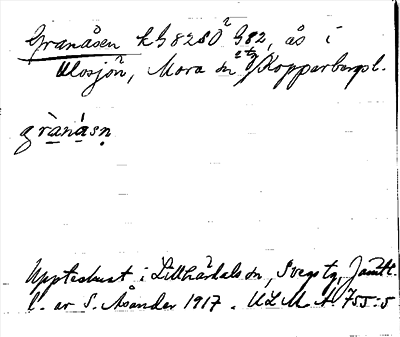 Granåsen kh 8280 h82, ås i
Mosjön, Mora sn o tg Kopparbergs l.
grànásn
Upptecknat i Lillhärdals sn, Svegs tg, Jämtl.
l. av S. Åsander 1917. ULMA 755:5